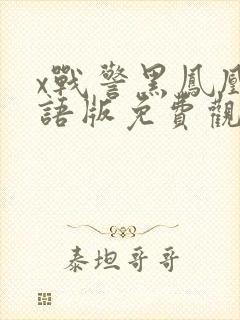 x戰警黑鳳凰
語版免費觀
泰坦哥哥